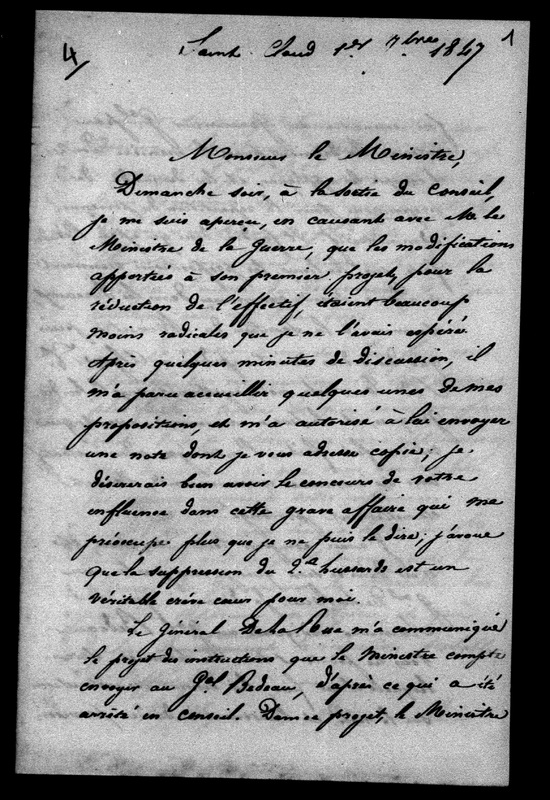 4
1
Saint-Cloud 1er 7bre 1847
Monsieur le Ministre,
Dimanche soir, à la sortie du Conseil,
je me suis aperçu, en causant avec Mr le
Ministre de la Guerre, que les modifications
apportées à son premier projet, pour la
réduction de l'effectif, étaient beaucoup
moins radicales que je ne l'avais espéré.
Après quelques minutes de discussion, il
m'a paru accueillir quelques unes de mes
propositions, et m'a autorisé à lui envoyer
une note dont je vous adresse copie; je
désirerais bien avoir le concours de votre
influence dans cette grave affaire qui me
préoccupe plus que je ne puis le dire; j'avoue
que la suppression du 2.d hussards est un
véritable crève cœur pour moi.
Le Général De la Rue m'a communiqué
le projet des instructions que le Ministre compte
envoyer au Gal Bedeau, d'après ce qui a été
arrêté en conseil. Dans ce projet, le Ministre